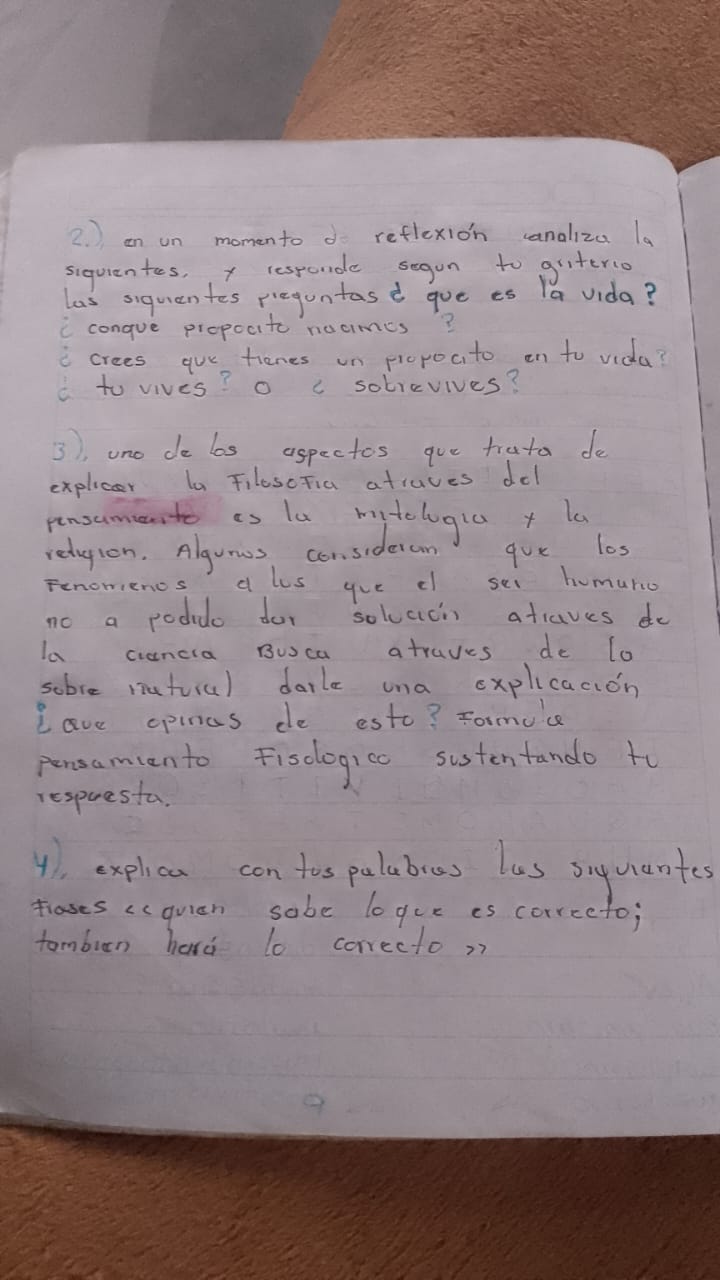 2.) en un momento de reflexión analiza la
siguientes, y responde segun tu griterio
las siguientes preguntas ¿ que es la vida?
¿ conque propocito nacimos ?
¿ crees que tienes un propocito en tu vida?
¿ tu vives? o ¿ sobrevives?
3). uno de los aspectos que trata de
explicar la Filosofia atraves del
pensamiento es la mitologia y la
religion. Algunos consideran que los
Fenomenos a los que el ser humano
no a podido dar solución atraves de
la ciencia Busca atraves de lo
sobre natural darle una explicación
¿ que opinas de esto? Formule
pensamiento Fisologico sustentando tu
respuesta.
4). explica con tus palabras las siguientes
frases << quien sabe lo que es correcto;
tambien hará lo correcto >>
9